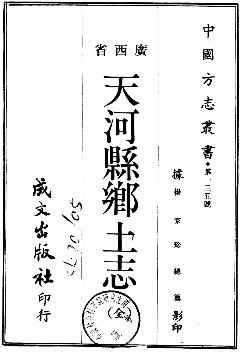 中國方志叢書・第一三五號
據楊家珍總纂影印
廣西省
天河縣鄉土志
（全）
成文出版社印行